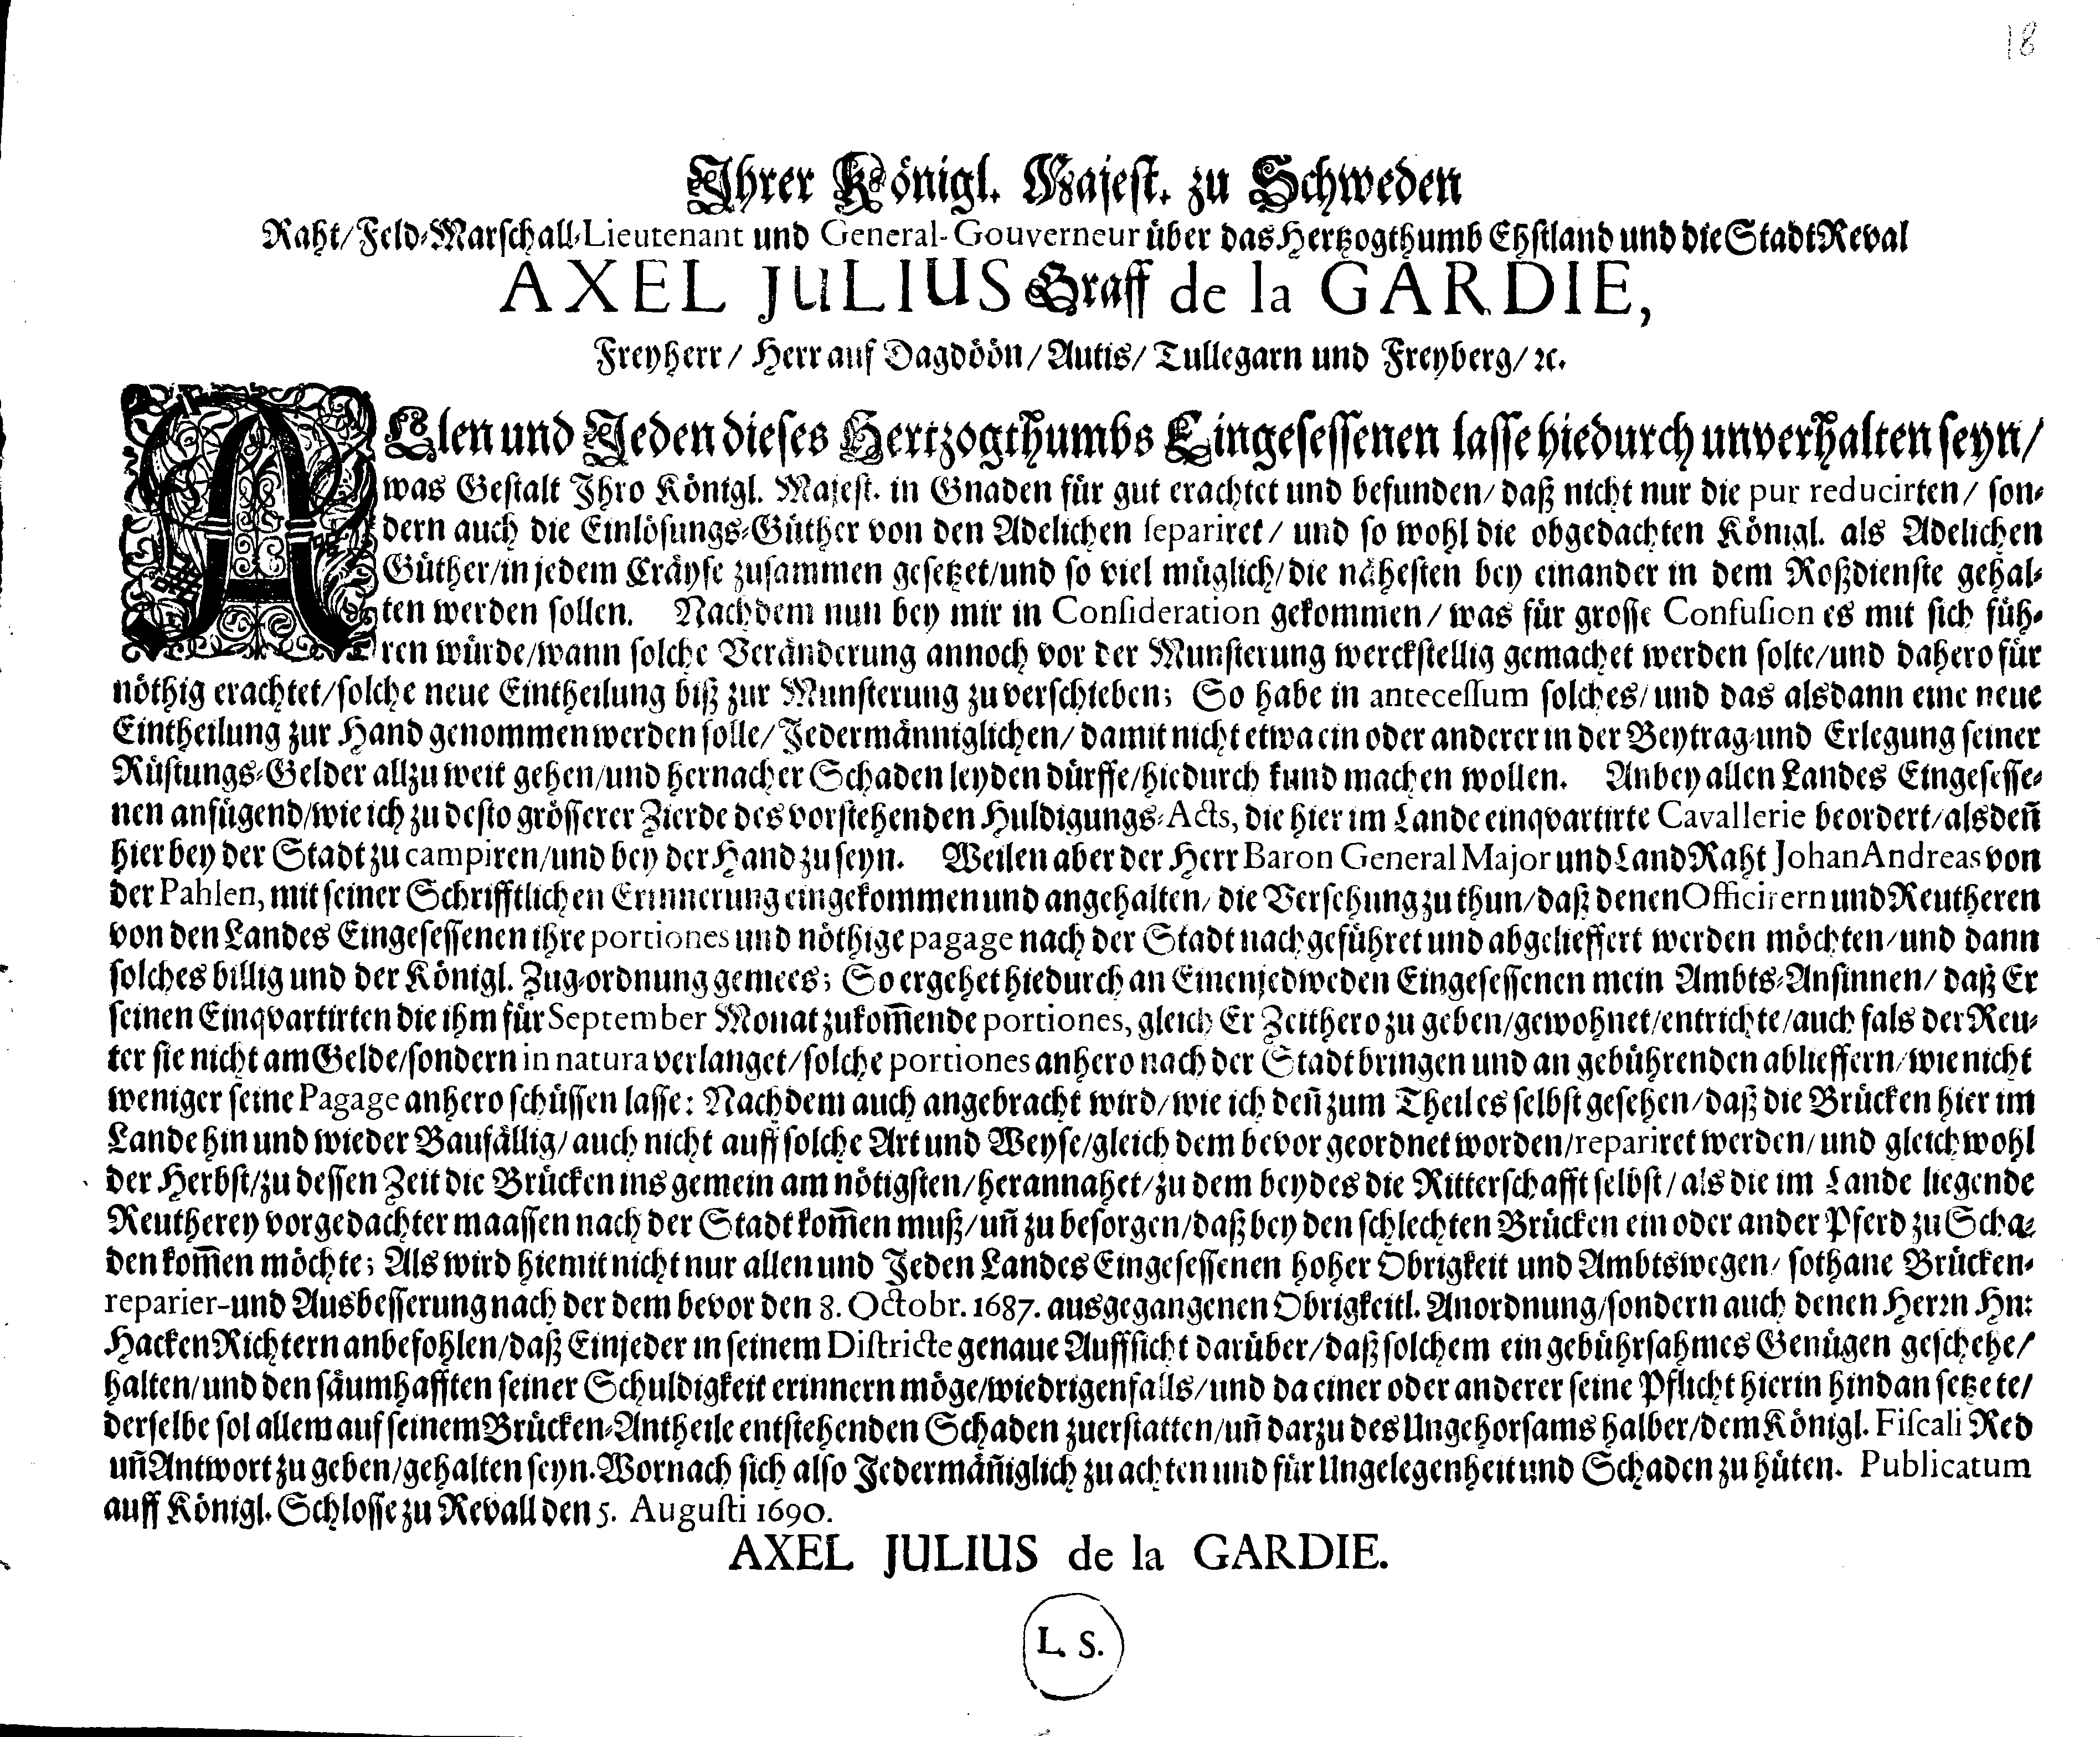 18
Ihrer Königl. Majest. zu Schweden
Raht/Feld-Marschall-Lieutenant und General-Gouverneur über das Hertzogthumb Ehstland und die Stadt Reval
AXEL JULIUS Graff de la GARDIE,
Freyherr/ Herr auf Dagdöön/Autis/Tullegarn und Freyberg/ꝛc.
ALlen und Jeden dieses Hertzogthumbs Eingesessenen lasse hiedurch unverhalten seyn/
was Gestalt Ihro Königl. Majest. in Gnaden für gut erachtet und befunden/daß nicht nur die pur reducirten/ son-
dern auch die Einlösungs-Güther von den Adelichen separiret/ und so wohl die obgedachten Königl. als Adelichen
Güther/in jedem Cräyse zusammen gesetzet/und so viel müglich/die nähesten bey einander in dem Roßdienste gehal-
ten werden sollen. Nachdem nun bey mir in Consideration gekommen/was für grosse Confusion es mit sich füh-
ren würde/wann solche Veränderung annoch vor der Munsterung werckstellig gemachet werden solte/und dahero für
nöthig erachtet/solche neue Eintheilung biß zur Munsterung zu verschieben; So habe in antecessum solches/und das alsdann eine neue
Eintheilung zur Hand genommen werden solle/Jedermänniglichen/damit nicht etwa ein oder anderer in der Beytrag-und Erlegung seiner
Rüstungs-Gelder allzu weit gehen/und hernacher Schaden leyden dürffe/hiedurch kund machen wollen. Anbey allen Landes Eingesesse-
nen anfügend/wie ich zu desto grösserer Zierde des vorstehenden Huldigungs-Acts, die hier im Lande einqvartirte Cavallerie beordert/alsdeñ
hier bey der Stadt zu campiren/und bey der Hand zu seyn. Weilen aber der Herr Baron General Major und Land Raht Johan Andreas von
der Pahlen, mit seiner Schrifftlichen Erinnerung eingekommen und angehalten/die Versehung zu thun/daß denen Officirern und Reutheren
von den Landes Eingesessenen ihre portiones und nöthige pagage nach der Stadt nachgeführet und abgelieffert werden möchten/und dann
solches billig und der Königl. Zug-ordnung gemees; So ergehet hiedurch an Einenjedweden Eingesessenen mein Ambts-Ansinnen/ daß Er
seinen Einqvartirten die ihm für September Monat zukom̃ende portiones, gleich Er Zeithero zu geben/gewohnet/entrichte/auch fals der Reu-
ter sie nicht am Gelde/sondern in natura verlanget/solche portiones anhero nach der Stadt bringen und an gebührenden ablieffern/wie nicht
weniger seine Pagage anhero schüssen lasse: Nachdem auch angebracht wird/wie ich deñ zum Theil es selbst gesehen/daß die Brücken hier im
Lande hin und wieder Baufällig/auch nicht auff solche Art und Weyse/gleich dem bevor geordnet worden/repariret werden/und gleichwohl
der Herbst/zu dessen Zeit die Brücken ins gemein am nötigsten/herannahet/zu dem beydes die Ritterschafft selbst/als die im Lande liegende
Reutherey vorgedachter maassen nach der Stadt kom̃en muß/uñ zu besorgen/daß bey den schlechten Brücken ein oder ander Pferd zu Scha-
den kom̃en möchte; Als wird hiemit nicht nur allen und Jeden Landes Eingesessenen hoher Obrigkeit und Ambtswegen/ sothane Brücken-
reparier-und Ausbesserung nach der dem bevor den 8. Octobr. 1687. ausgegangenen Obrigkeitl. Anordnung/sondern auch denen Herꝛn Hn:
Hacken Richtern anbefohlen/daß Einjeder in seinem Districte genaue Auffsicht darüber/daß solchem ein gebührsahmes Genügen geschehe/
halten/und den säumhafften seiner Schuldigkeit erinnern möge/wiedrigenfalls/und da einer oder anderer seine Pflicht hierin hindan setzete/
derselbe sol allem auf seinem Brücken-Antheile entstehenden Schaden zuerstatten/uñ darzu des Ungehorsams halber/dem Königl. Fiscali Red
uñ Antwort zu geben/gehalten seyn. Wornach sich also Jedermäñiglich zu achten und für Ungelegenheit und Schaden zu hüten. Publicatum
auff Königl. Schlosse zu Revall den 5. Augusti 1690.
AXEL JULIUS de la GARDIE.
L. S.